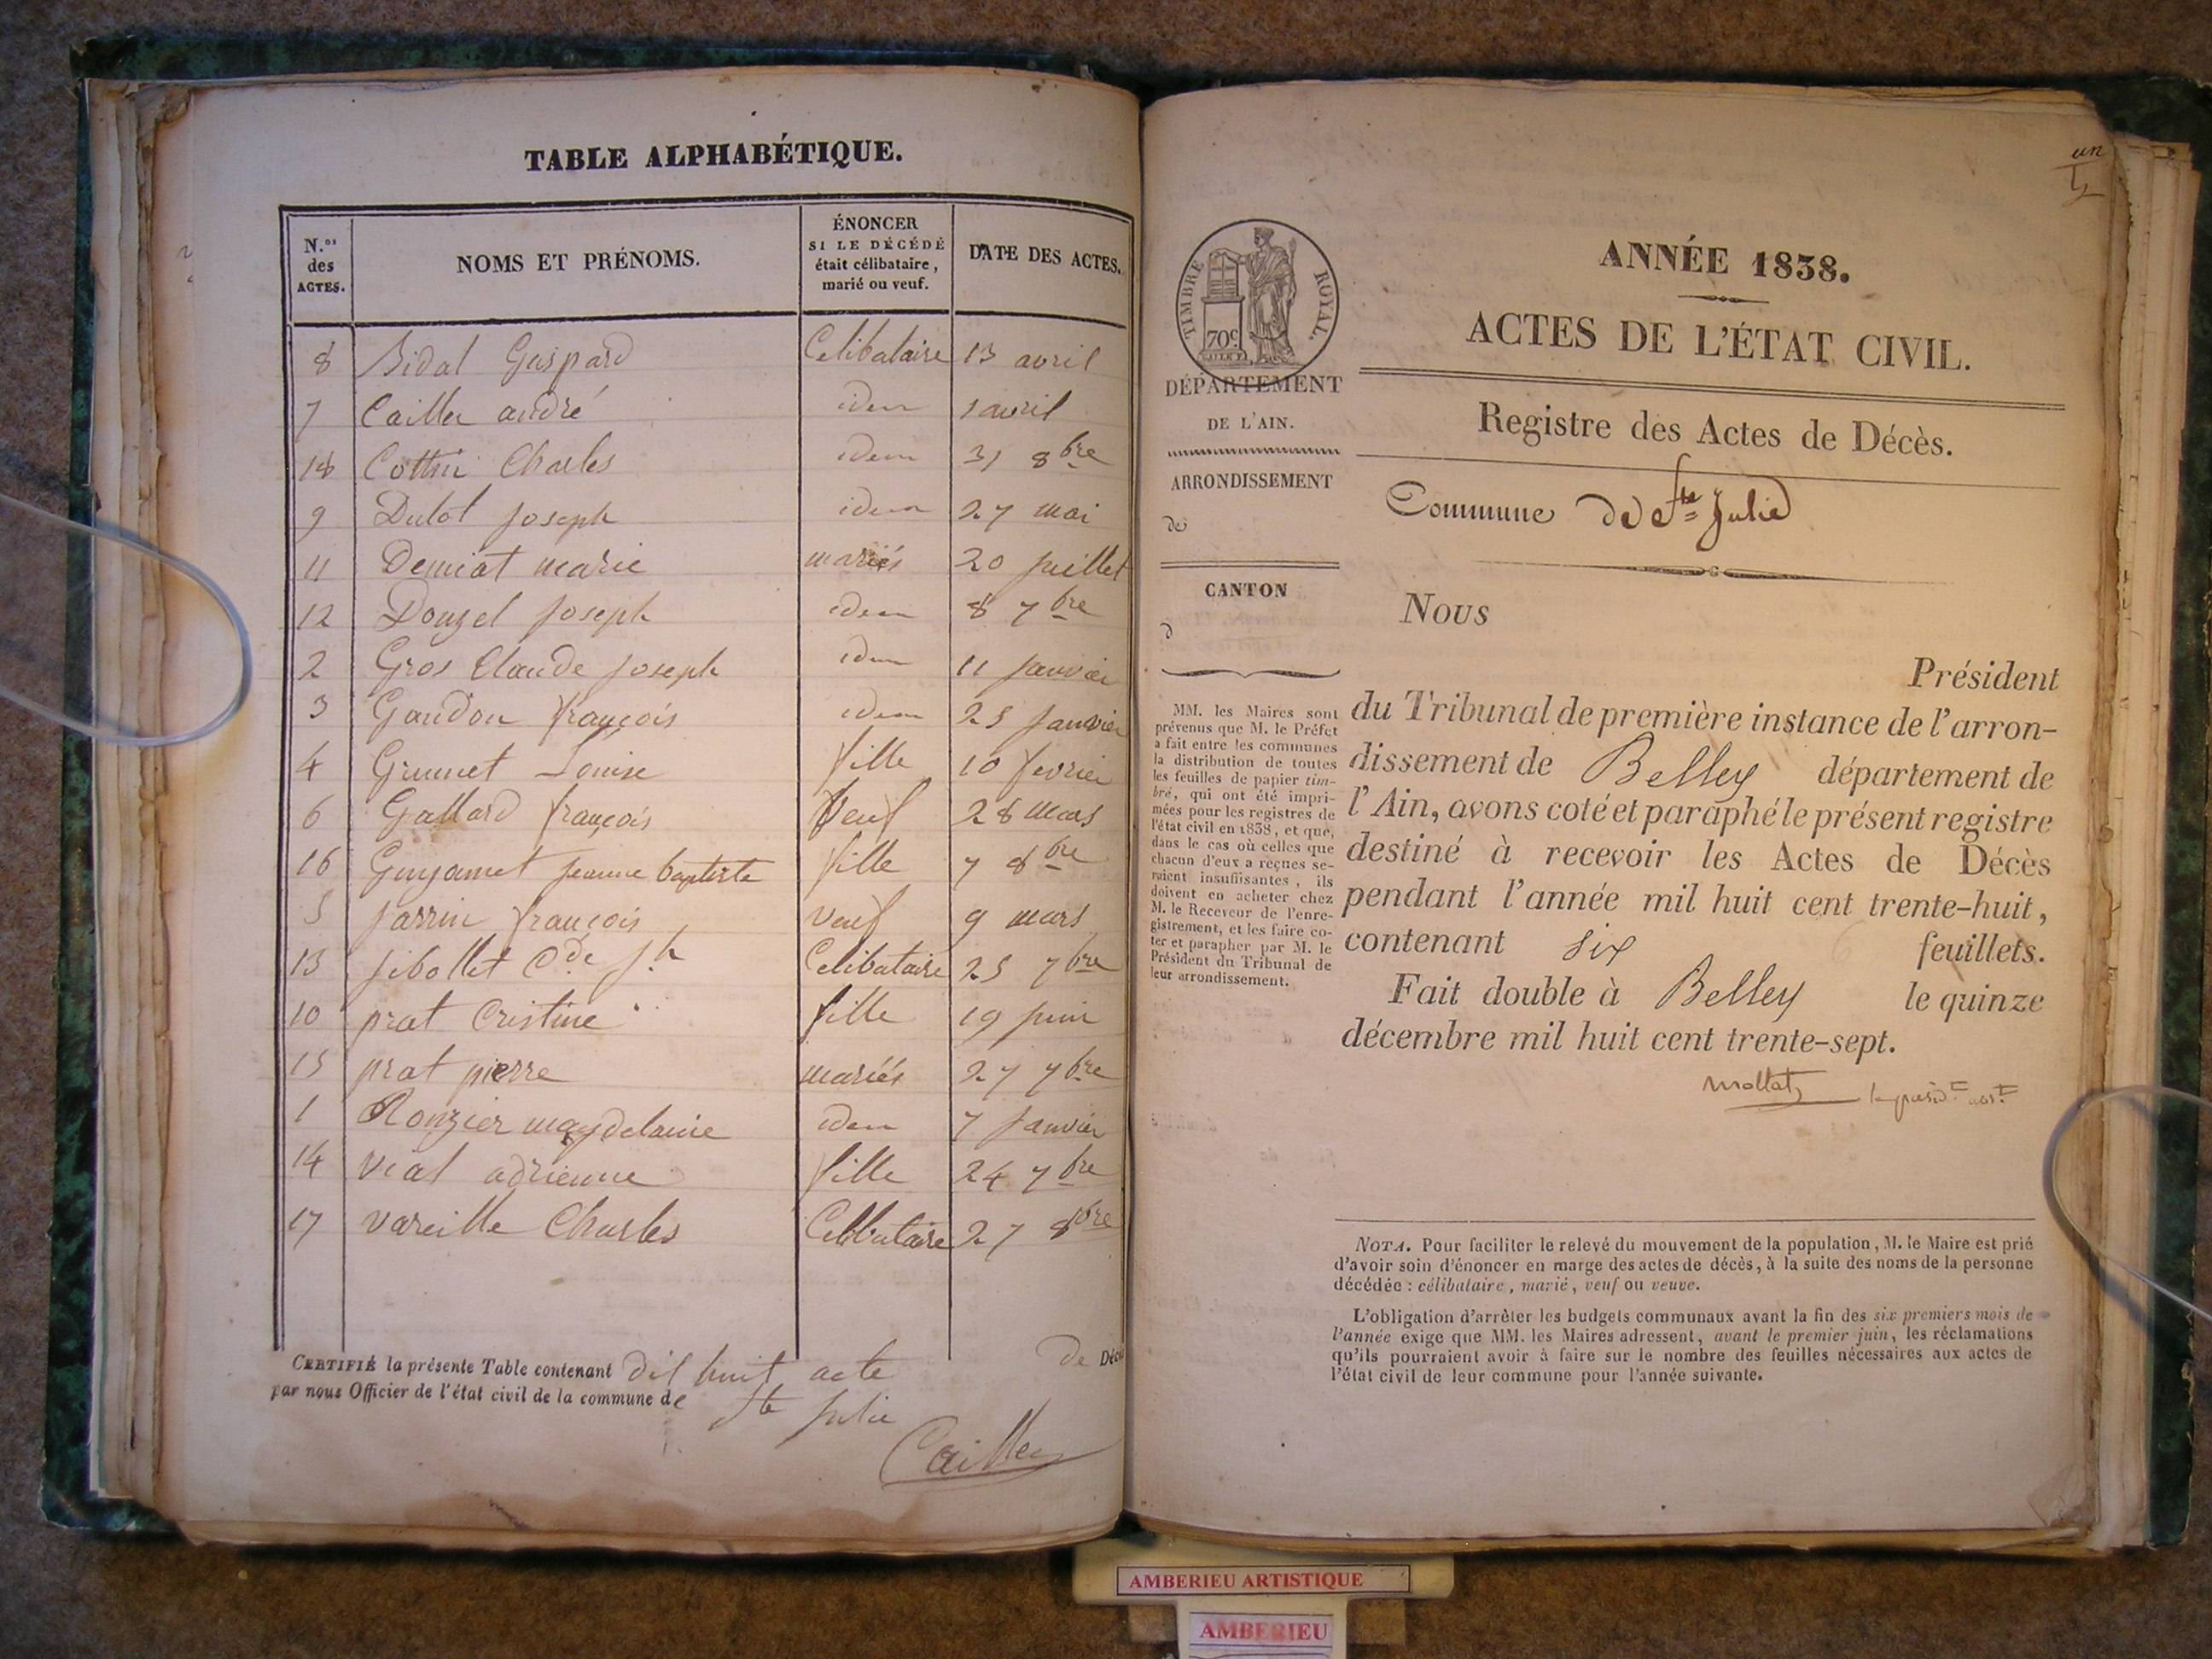 TABLE ALPHABÉTIQUE.
N.os des ACTES. NOMS ET PRÉNOMS. ÉNONCER SI LE DÉCÉDÉ était célibataire, marié ou veuf. DATE DES ACTES.
8 Bidal Gaspard Celibataire 13 avril
7 Cailler andré idem 1 avril
18 Cottin Charles idem 31 8bre
9 Dulot joseph idem 27 mai
11 Demiat marie mariés 20 juillet
12 Douzel joseph idem 8 7bre
2 Gros Claude joseph idem 11 janvier
3 Gaudon françois idem 25 janvier
4 Grumet Louise fille 10 fevrier
6 Gallard françois Veuf 28 mars
16 Guyamet jeanne baptiste fille 7 8bre
5 jarrin françois veuf 9 mars
13 jibollet Cde jh Celibataire 25 7bre
10 prat Cristine fille 19 juin
15 prat pierre mariés 27 7bre
1 Ronzier magdelaine idem 7 janvier
14 vial adrienne fille 24 7bre
17 vareille Charles Celibataire 27 8bre
CERTIFIÉ la présente Table contenant dil huit acte de Décè
par nous Officier de l'état civil de la commune de Ste julie
Cailler
un
TIMBRE ROYAL.
70c.
DÉPARTEMENT
DE L'AIN.
ARRONDISSEMENT
de
CANTON
d
MM. les Maires sont
prévenus que M. le Préfet
a fait entre les communes
la distribution de toutes
les feuilles de papier tim-
bré, qui ont été impri-
mées pour les registres de
l'état civil en 1838, et que,
dans le cas où celles que
chacun d'eux a reçues se-
raient insuffisantes, ils
doivent en acheter chez
M. le Receveur de l'enre-
gistrement, et les faire co-
ter et parapher par M. le
Président du Tribunal de
leur arrondissement.
ANNÉE 1838.
ACTES DE L'ÉTAT CIVIL.
Registre des Actes de Décès.
Commune de Ste Julie
Nous
Président
du Tribunal de première instance de l'arron-
dissement de Belley département de
l'Ain, avons coté et paraphé le présent registre
destiné à recevoir les Actes de Décès
pendant l'année mil huit cent trente-huit,
contenant six feuillets.
Fait double à Belley le quinze
décembre mil huit cent trente-sept.
NOTA. Pour faciliter le relevé du mouvement de la population, M. le Maire est prié
d'avoir soin d'énoncer en marge des actes de décès, à la suite des noms de la personne
décédée : célibataire, marié, veuf ou veuve.
L'obligation d'arrêter les budgets communaux avant la fin des six premiers mois de
l'année exige que MM. les Maires adressent, avant le premier juin, les réclamations
qu'ils pourraient avoir à faire sur le nombre des feuilles nécessaires aux actes de
l'état civil de leur commune pour l'année suivante.
AMBERIEU ARTISTIQUE
AMBERIEU